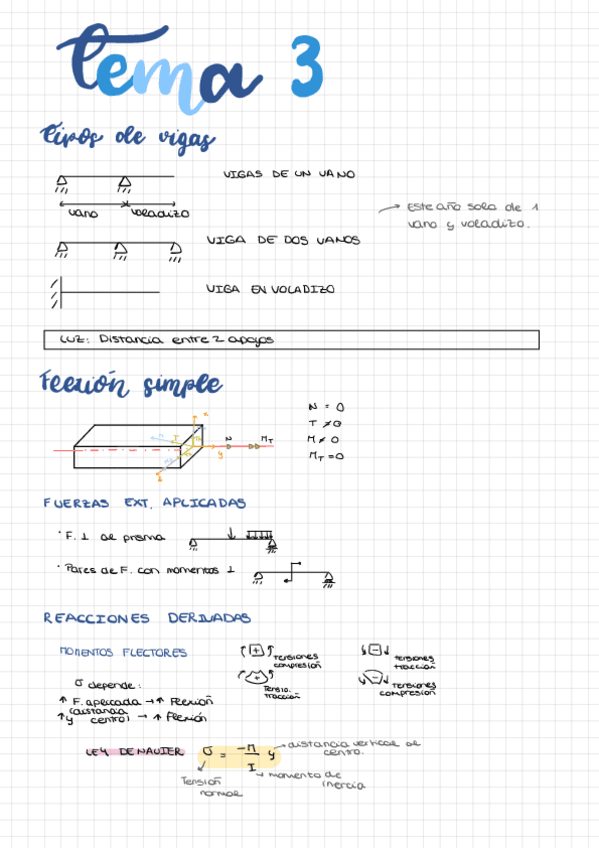 tema 3
tipos de vigas
VIGAS DE UN VANO
vano voladizo
Este año solo de 1
vano y voladizo.
VIGA DE DOS VANOS
VIGA EN VOLADIZO
LUZ: Distancia entre 2 apoyos
Flexión simple
N = 0
T ≠ 0
M ≠ 0
MT = 0
N MT
y
FUERZAS EXT. APLICADAS
· F. ⊥ al prisma
· Pares de F. con momentos ⊥
REACCIONES DERIVADAS
MOMENTOS FLECTORES
+ tensiones compresión
- tensiones tracción
+ Tensio. tracción
- tensiones compresión
σ depende:
↑ F. aplicada → ↑ Flexión
↑ y (distancia centro) → ↑ flexión
LEY DE NAVIER
σ = -M/I y
distancia vertical al centro.
momento de inercia
Tensión normal